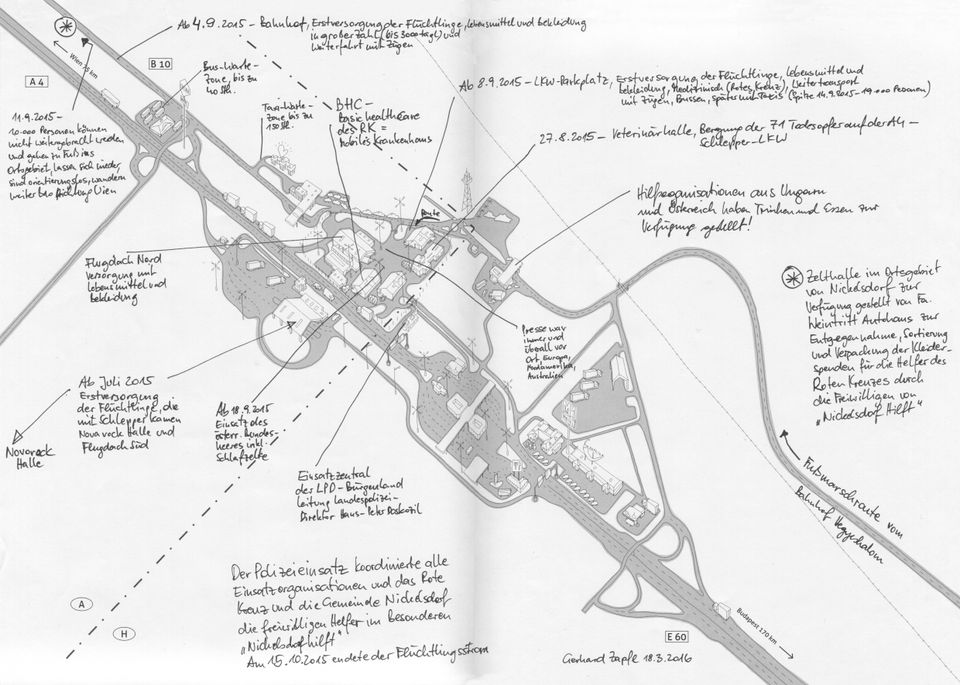 Ab 4.9.2015 – Bahnhof, Erstversorgung der Flüchtlinge, Lebensmittel und Bekleidung
in großer Zahl (bis 3000 tägl) und
Weiterfahrt mit Zügen
Wien 75 km
A 4
B 10
Bus-Warte-
zone, bis zu
40 Stk.
Taxi-Warte-
zone bis zu
150 Stk.
BHC-
basic healthcare
des RK =
mobiles Krankenhaus
Ab 8.9.2015 – LKW-Parkplatz, Erstversorgung der Flüchtlinge, Lebensmittel und
Bekleidung, Medizinisch (Rotes Kreuz), Weitertransport
mit Zügen, Bussen, später mit Taxis (Spitze 14.9.2015 – 19.000 Personen)
27.8.2015 – Veterinärhalle, Bergung der 71 Todesopfer auf der A4 –
Schlepper-LKW
11.9.2015 –
10.000 Personen können
nicht weitergebracht werden
und gehen zu Fuß ins
Ortsgebiet, lassen sich nieder,
sind orientierungslos, wandern
weiter B10 Richtung Wien
Hilfsorganisationen aus Ungarn
und Österreich haben Trinken und Essen zur
Verfügung gestellt!
Route
Flugdach Nord
Versorgung mit
Lebensmittel und
Bekleidung
Zelthalle im Ortsgebiet
von Nickelsdorf zur
Verfügung gestellt von Fa.
Weintritt Autohaus zur
Entgegennahme, Sortierung
und Verpackung der Kleider-
spenden für die Helfer des
Roten Kreuzes durch
die Freiwilligen von
"Nickelsdorf Hilft"
Presse war
immer und
überall vor
Ort, Europa,
Nordamerika,
Australien
Ab Juli 2015
Erstversorgung
der Flüchtlinge, die
mit Schlepper kamen
Nova rock Halle und
Flugdach Süd
Novarock
Halle
Ab 18.9.2015
Einsatz des
österr. Bundes-
heeres inkl.
Schlafzelte
Einsatzzentral
der LPD – Burgenland
Leitung Landespolizei-
Direktor Hans-Peter Doskozil
Fußmarschroute vom
Bahnhof Hegyeshalom
Der Polizeieinsatz koordinierte alle
Einsatzorganisationen und das Rote
Kreuz und die Gemeinde Nickelsdorf
die freiwilligen Helfer im Besonderen
"Nickelsdorf hilft"!
Am 15.10.2015 endete der Flüchtlingsstrom
A
H
E 60
Budapest 170 km
Gerhard Zapfl 18.3.2016